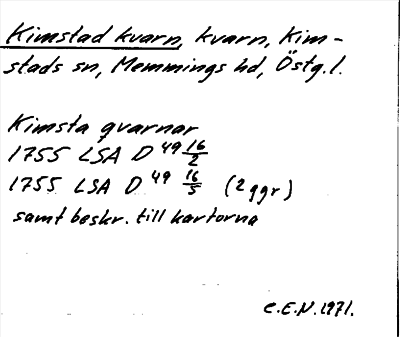 Kimstad kvarn, kvarn, Kim-
stads sn, Memmings hd, Östg.l.
Kimsta qvarnar
1755 LSA D 49 16/2
1755 LSA D 49 16/5 (2 ggr)
samt beskr. till kartorna
C.E.N. 1971.